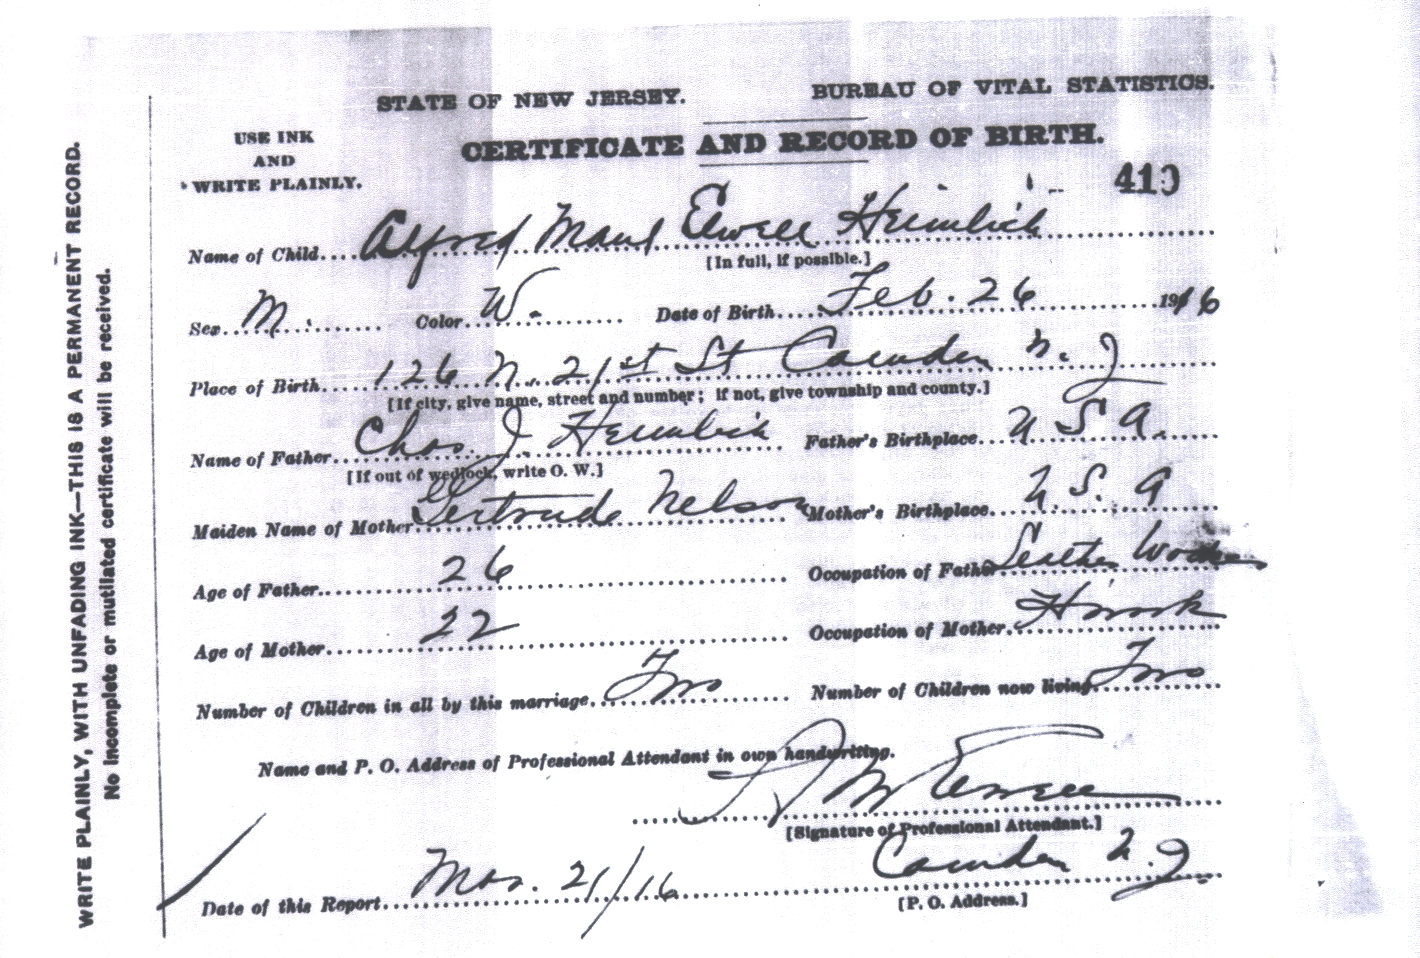 STATE OF NEW JERSEY. BUREAU OF VITAL STATISTICS.
USE INK
AND
WRITE PLAINLY.
CERTIFICATE AND RECORD OF BIRTH.
410
Name of Child.... Alfred Elwell Heimlich
[In full, if possible.]
Sex... M. Color... W. Date of Birth.... Feb. 26 1916
Place of Birth.... 126 N. 21st St Camden N. J
[If city, give name, street and number; if not, give township and county.]
Name of Father... Chas. J. Heimlich Father's Birthplace... U S A.
[If out of wedlock, write O. W.]
Maiden Name of Mother... Gertrude Nelson Mother's Birthplace... U. S. A
Age of Father... 26 Occupation of Father Leather Worker
Age of Mother... 22 Occupation of Mother... H work
Number of Children in all by this marriage... Two Number of Children now living... Two
Name and P. O. Address of Professional Attendant in own handwriting.
[Signature of Professional Attendant.]
Date of this Report... Mar. 21/16 Camden N. J.
[P. O. Address.]
WRITE PLAINLY, WITH UNFADING INK—THIS IS A PERMANENT RECORD.
No incomplete or mutilated certificate will be received.